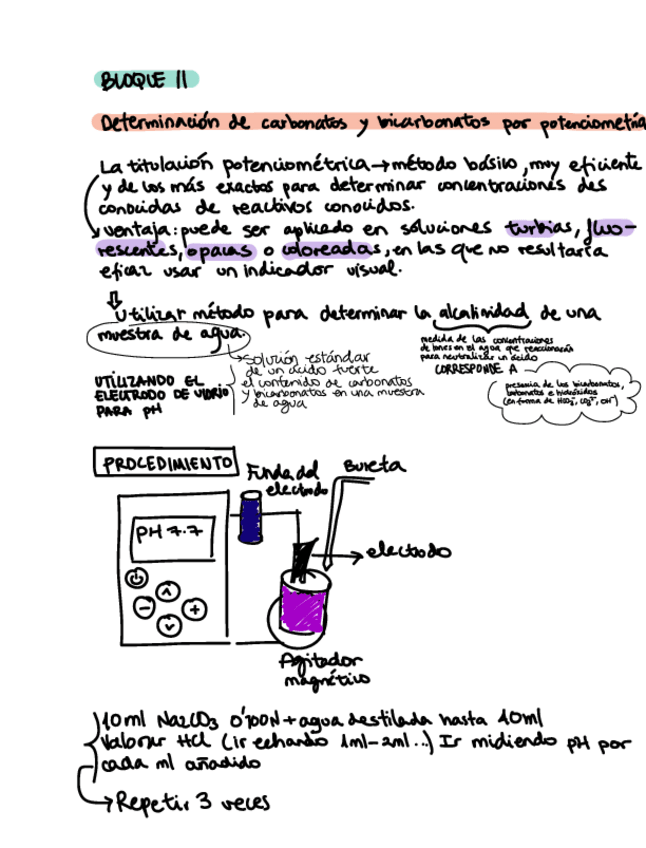 BLOQUE II
Determinación de carbonatos y bicarbonatos por potenciometría
La titulación potenciométrica → método básico, muy eficiente
y de los más exactos para determinar concentraciones des
conocidas de reactivos conocidos.
ventaja: puede ser aplicado en soluciones turbias, fluo-
rescentes, opacas o coloreadas, en las que no resultaría
eficaz usar un indicador visual.
⇩ Utilizar método para determinar la alcalinidad de una
muestra de agua.
medida de las concentraciones
de iones en el agua que reaccionarán
para neutralizar un ácido
CORRESPONDE A
presencia de los bicarbonatos,
carbonatos e hidróxidos
(en forma de HCO₃⁻, CO₃²⁻, OH⁻)
→ Solución estándar
de un ácido fuerte
el contenido de carbonatos
y bicarbonatos en una muestra
de agua
UTILIZANDO EL
ELECTRODO DE VIDRIO
PARA pH
PROCEDIMIENTO
Funda del
electrodo
Bureta
PH 7.7
→ electrodo
- +
Agitador
magnético
10ml Na2CO3 0'100N + agua destilada hasta 40ml
Valorar HCl (ir echando 1ml-2ml...) Ir midiendo pH por
cada ml añadido
→ Repetir 3 veces